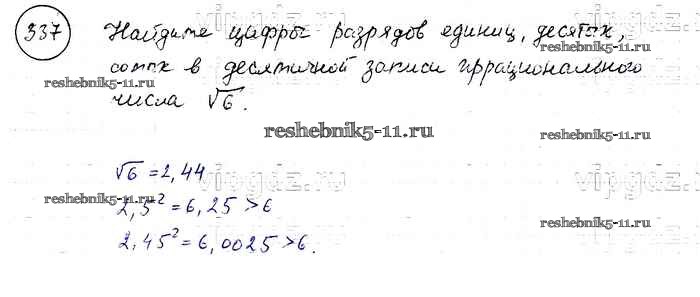 337 Найдите цифры разрядов единиц, десятых,
сотых в десятичной записи иррационального
числа √6.
√6 = 2,44
2,5² = 6,25 > 6
2,45² = 6,0025 > 6.
vipgdz.ru
reshebnik5-11.ru
reshebnik5-11.ru
reshebnik5-11.ru
reshebnik5-11.ru
vipgdz.ru
vipgdz.ru
reshebnik5-11.ru
reshebnik5-11.ru
vipgdz.ru
vipgdz.ru